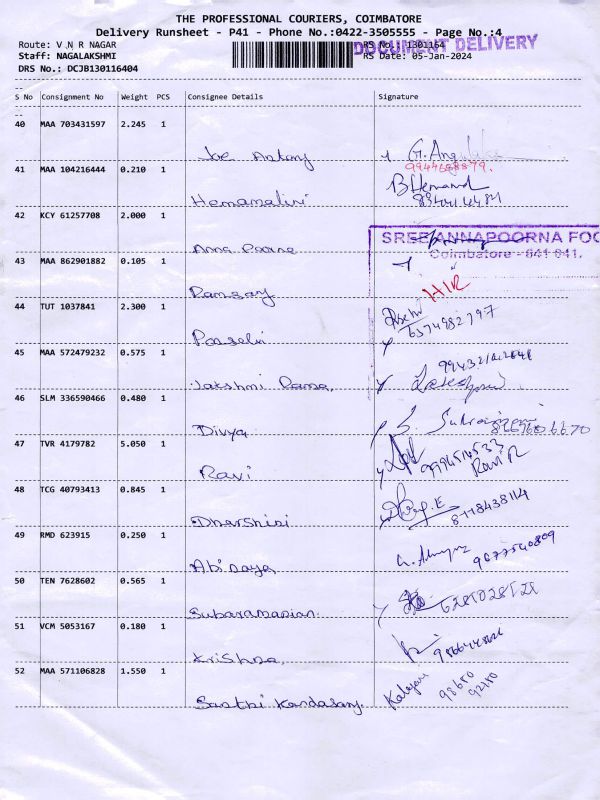 THE PROFESSIONAL COURIERS, COIMBATORE
Delivery Runsheet - P41 - Phone No.:0422-3505555 - Page No.:4
Route: V N R NAGAR RS No.: 1301164
DOCUMENT DELIVERY
Staff: NAGALAKSHMI RS Date: 05-Jan-2024
DRS No.: DCJB130116404
S No Consignment No Weight PCS Consignee Details Signature
40 MAA 703431597 2.245 1
Joe Antony
41 MAA 104216444 0.210 1
Hemamalini
42 KCY 61257708 2.000 1
Anna Poorna
SREE ANNAPOORNA FOO
Coimbatore - 641 041.
43 MAA 862901882 0.105 1
Ramsay
44 TUT 1037841 2.300 1
Porselvi
6374982797
45 MAA 572479232 0.575 1
Lakshmi Rama.
46 SLM 336590466 0.480 1
Divya
47 TVR 4179782 5.050 1
Ravi
Ravi R
48 TCG 40793413 0.845 1
Dharshini
49 RMD 623915 0.250 1
Abinaya
9677540809
50 TEN 7628602 0.565 1
Subaramanian.
51 VCM 5053167 0.180 1
Krishna.
52 MAA 571106828 1.550 1
Santhi Kandasamy.
Kalyani
98650
92110